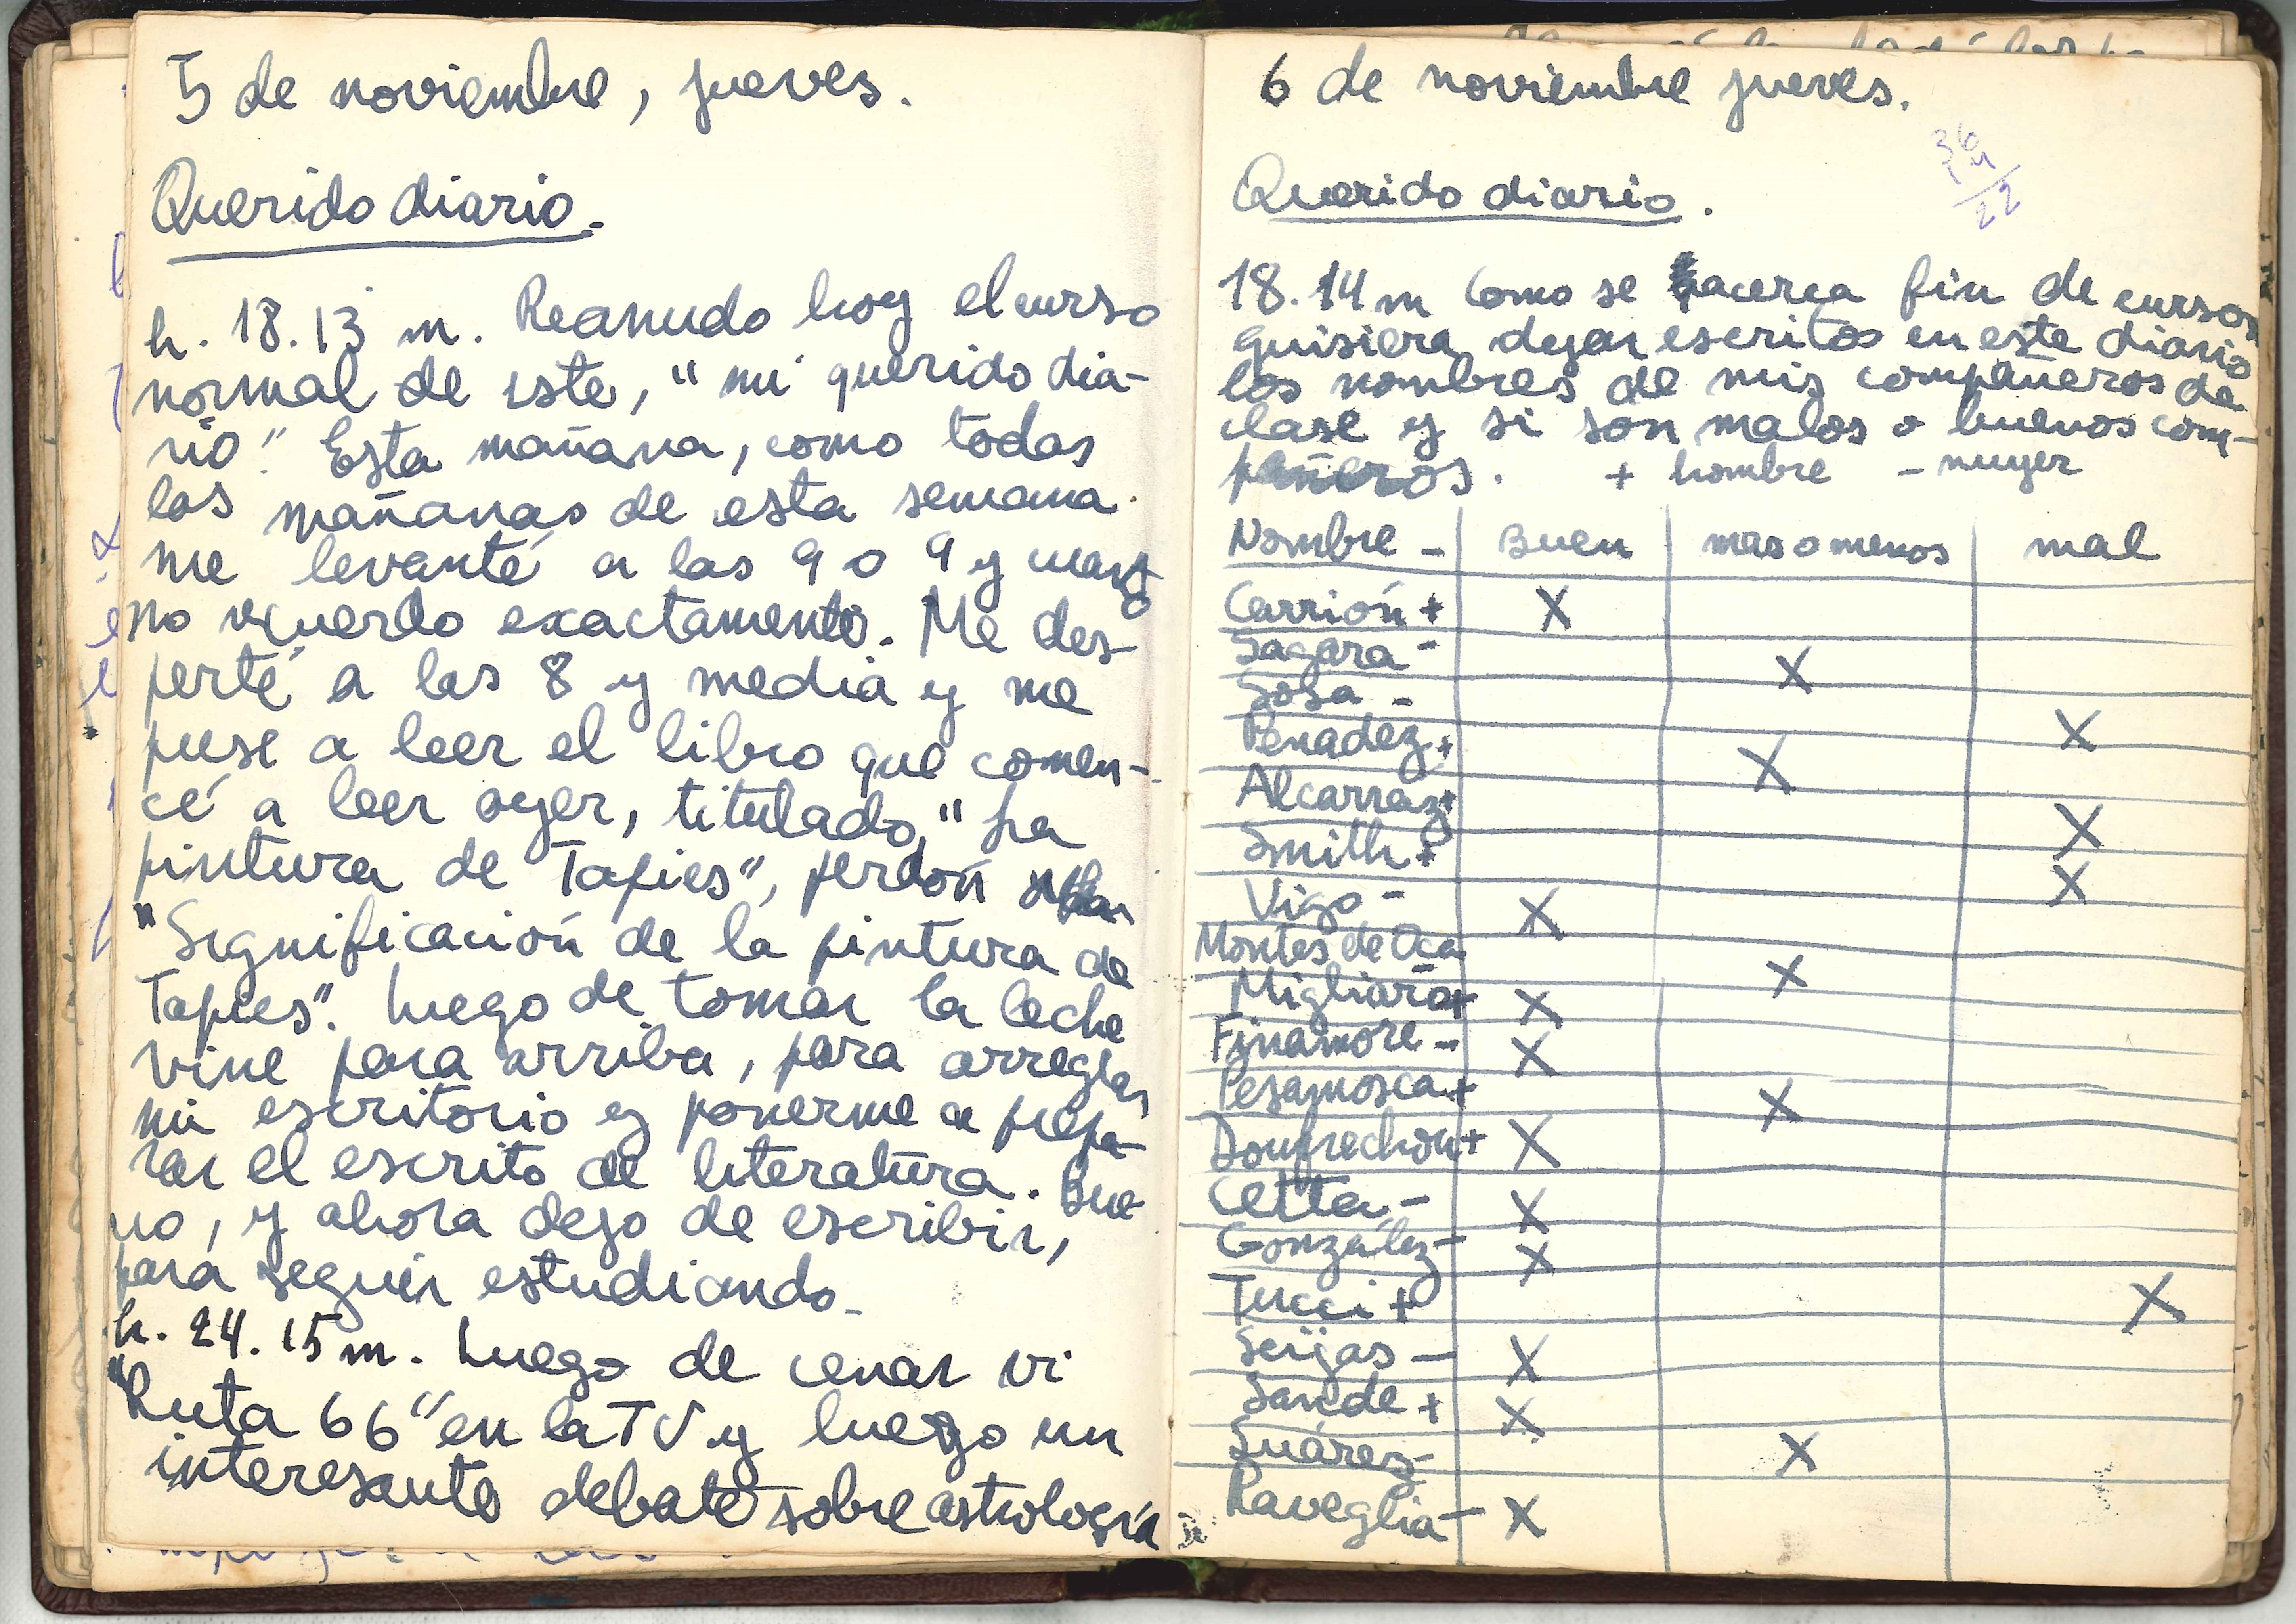 5 de noviembre, jueves.
Querido diario.
h. 18.13 m. Reanudo hoy el curso
normal de este, "mi querido dia-
rio". Esta mañana, como todas
las mañanas de esta semana
me levanté a las 9 o 9 y cuarto
no recuerdo exactamente. Me des-
perté a las 8 y media y me
puse a leer el libro que comen-
cé a leer ayer, titulado, "La
pintura de Tapies", perdón
"Significación de la pintura de
Tapies". Luego de tomar la leche
vine para arriba, para arreglar
mi escritorio y ponerme a prepa-
rar el escrito de literatura. Bue-
no, y ahora dejo de escribir,
para seguir estudiando.
h. 24.15 m. Luego de cenar vi
"Ruta 66" en la TV y luego un
interesante debate sobre astrología
6 de noviembre jueves.
Querido diario.
18.14 m Como se acerca fin de curso
quisiera dejar escritos en este diario
los nombres de mis compañeros de
clase y si son malos o buenos com-
pañeros. + hombre - mujer
Nombre - Buen mas o menos mal
Carrión + X
Sagara - X
Sosa - X
Penadez + X
Alcarraz + X
Smith + X
Vigo - X
Montes de Oca X
Migliaro + X
Finamore - X
Pesamosca + X
Donfrechou + X
Cetta - X
González - X
Tucci + X
Seijas - X
Sande + X
Suárez - X
Raveglia - X